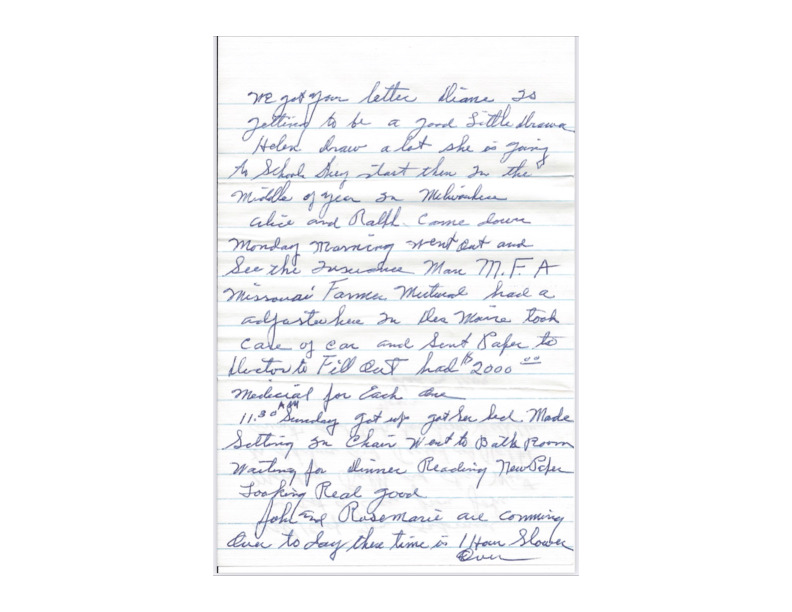 we got your letter Diane Is
getting to be a good Little drawer
Helen draw a lot she is going
to School they start them In the
middle of year In Milwaukee
Alice and Ralph Come down
Monday Morning went out and
See the Insurance Man M.F.A
Missouri Farmer Mutual had a
adjuster here In Des Moine took
Care of car and Sent Paper to
Doctor to Fill Out had $2000 00
Medicial for Each One
11.30 AM Sunday got up got her bed Made
Sitting In Chair Went to Bath Room
Waiting for Dinner Reading NewPaper
Looking Real good
John and Rosemarie are comming
Over to day there time is 1 Hour Slower
Over